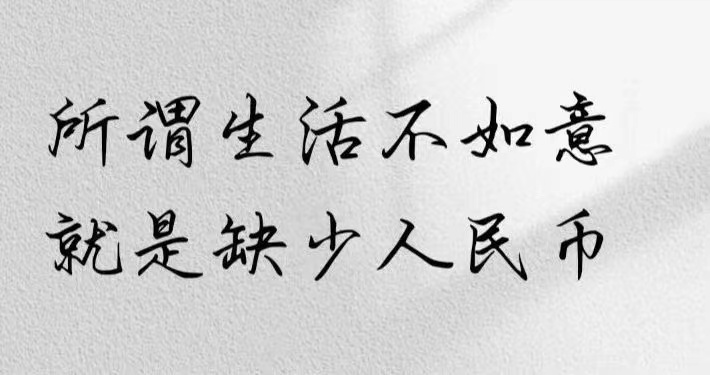 所谓生活不如意
就是缺少人民币